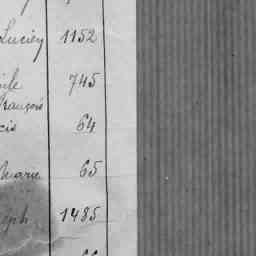 Lucien 1152
745
François
cis 64
Marie 65
eph 1485